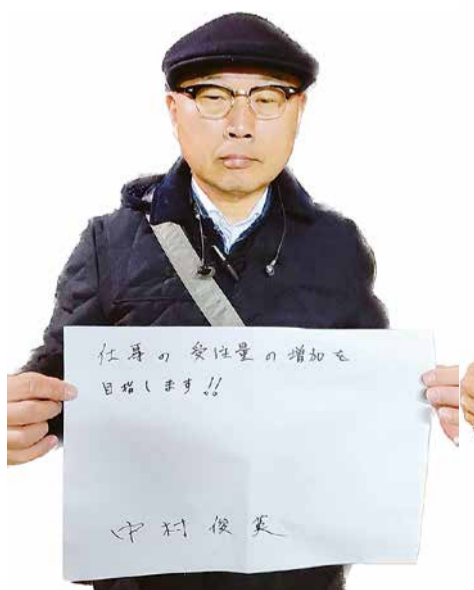 仕事の受注量の増加を
目指します!!
中村俊英